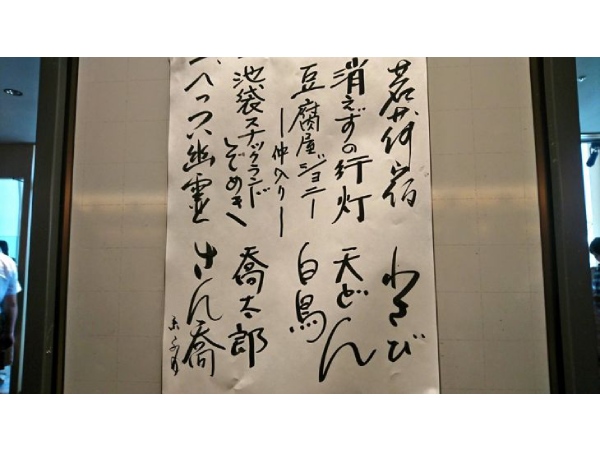 茗荷宿 わさび
消えずの行灯 天どん
豆腐屋ジョニー 白鳥
―仲入り―
池袋スナックランド
ぞめき 喬太郎
へっつい幽霊 さん喬